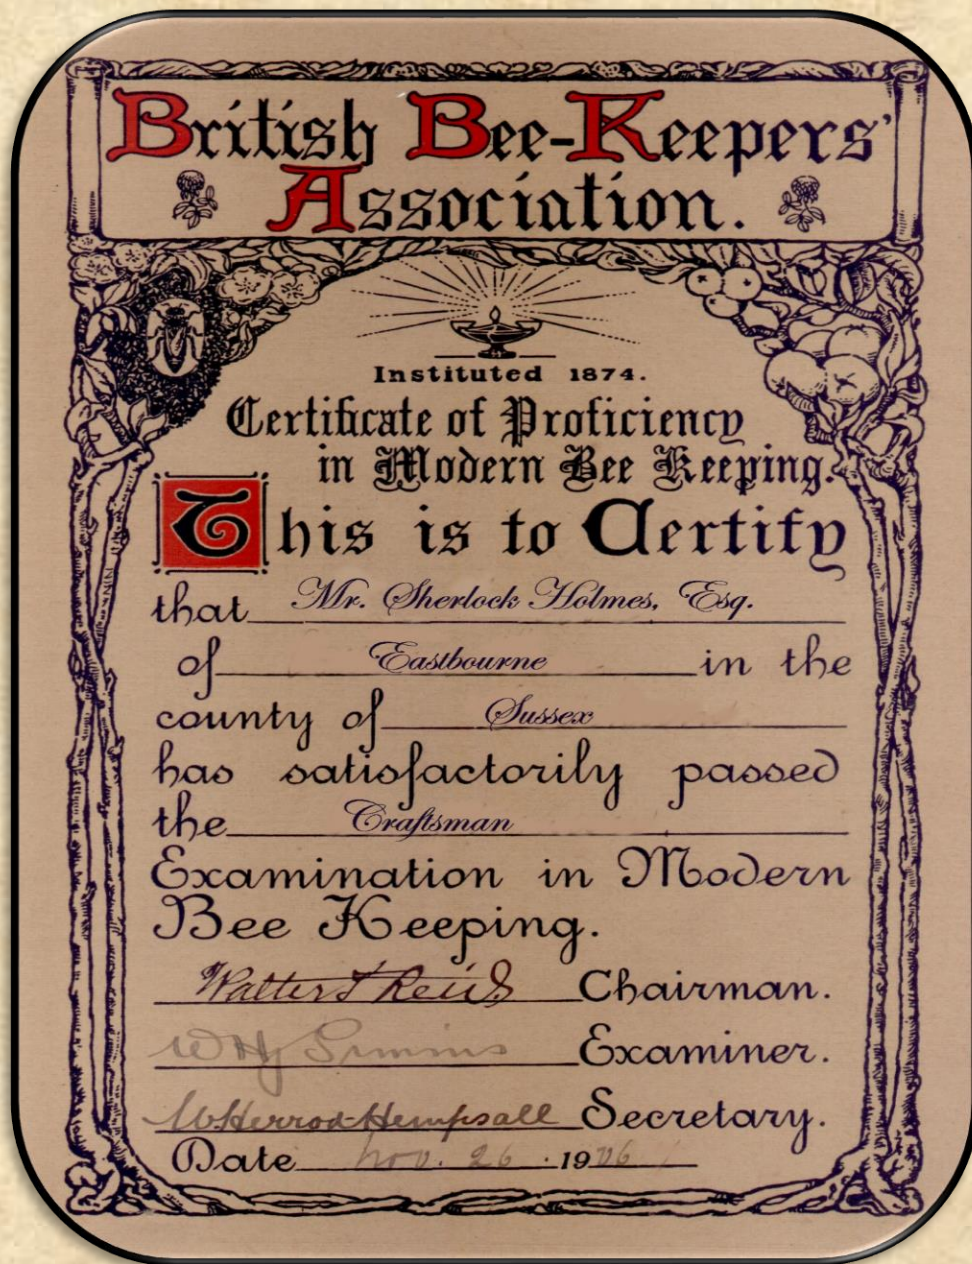 British Bee-Keepers'
Association.
Instituted 1874.
Certificate of Proficiency
in Modern Bee Keeping.
This is to Certify
that Mr. Sherlock Holmes, Esq.
of Eastbourne in the
county of Sussex
has satisfactorily passed
the Craftsman
Examination in Modern
Bee Keeping.
Walter F Reid Chairman.
Examiner.
W Herrod-Hempsall Secretary.
Date Nov. 26 · 1906